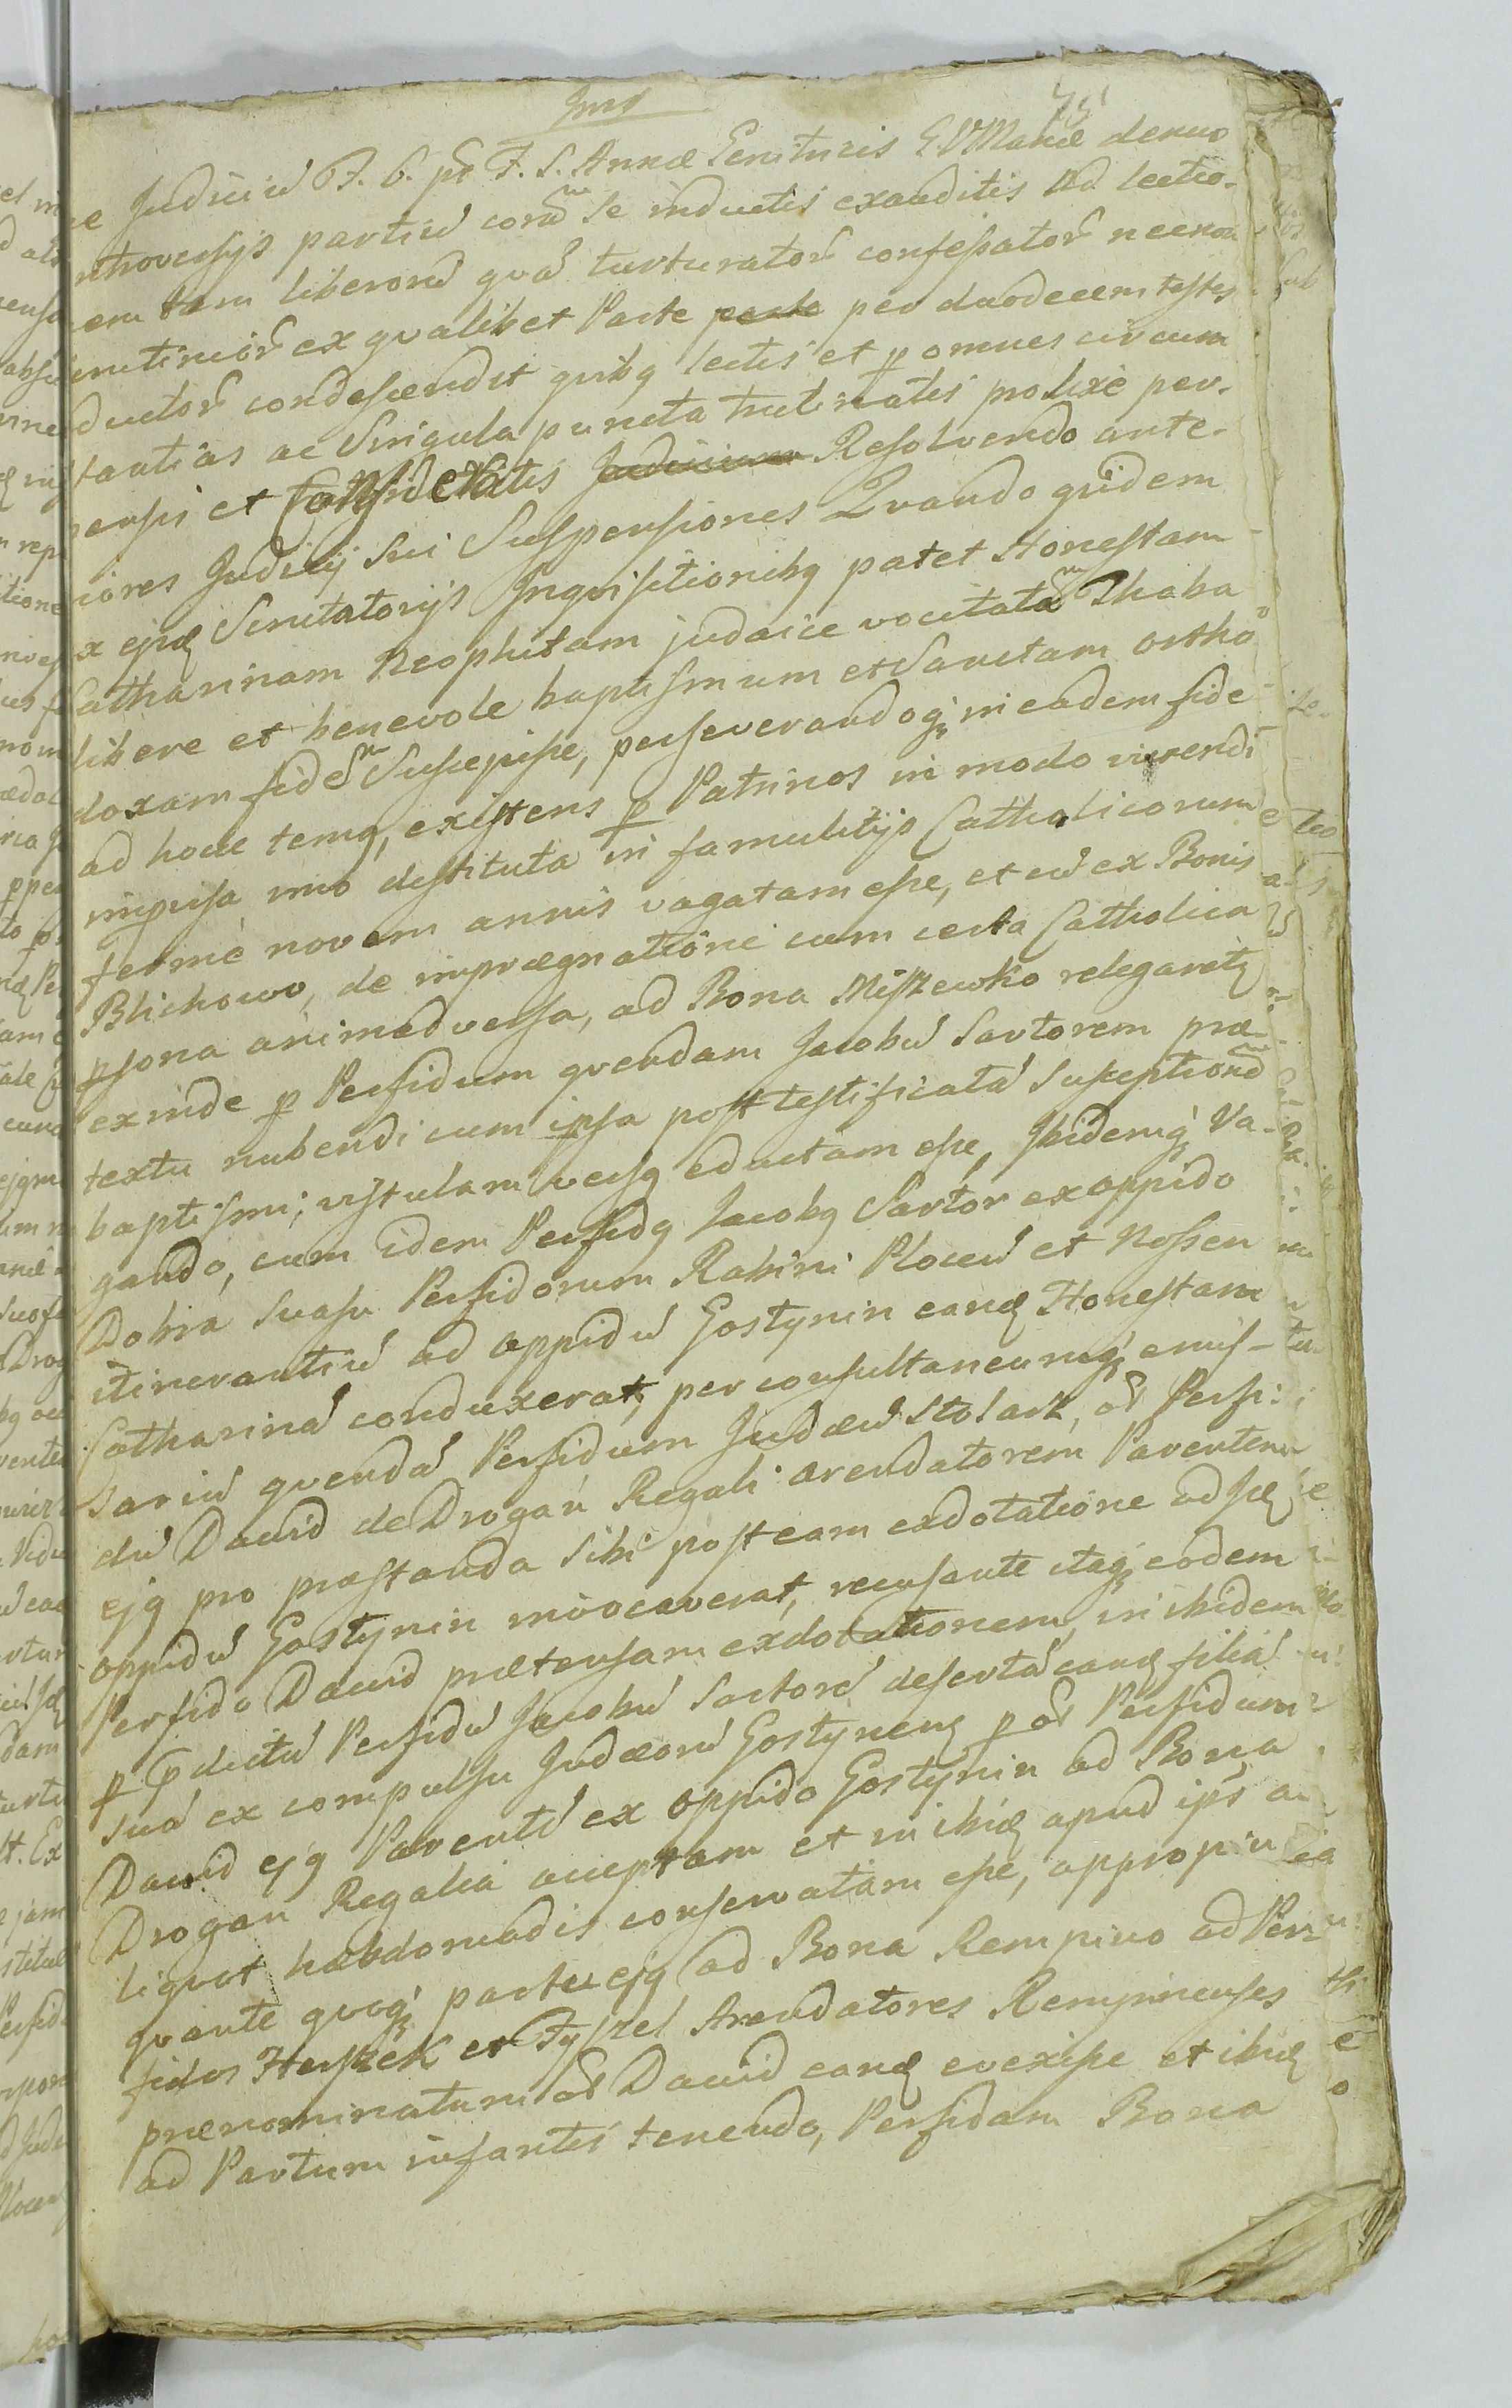 Judiciū F. 6. pt F. S. Annæ Genitricis G. V Mariæ denuo
ntroversijs partiū corā se inductis exauditis ad lectio-
nem tam liberorū qvā turturator confessator necnon
crutinior ex qvalibet Parte parte per duodecem testes
ductor condescendit qvibq lectis et p omnes circum
stantias ac Singula puncta trutinatis prolixe per-
pensis et Consideratis Judicium Resolvendo ante-
riores Judicij Sui Suspensiones Qvando qvidem
ex ejsd Scrutatorijs Inqvisitionibq patet Honestam
Catharinam Neophitam judaice vocitatā Thaba
libere et benevole baptismum et Sanctam ortho
doxam fidē Suscepisse, perseverandoq in eadem fide
ad hocce tempq, existens p Patrinos in modo vivendi
improvisa imo destituta in famulitijs Catholicorum
ferme novem annis vagatam esse, et cū ex Bonis
Blichowo, de imprægnatione cum certa Catholica
psona animadversa, ad Bona Miszewko relegaretq
exinde p Perfidum qvendam Jacobū Sartorem præ-
textu nubendi cum ipsa post testificatā Susceptionē
baptismi; vistulam versq eductam esse, Ibidemq Va-
gando, cum idem Perfidq Jacobq Sartor ex oppido
Dobra Suasu Perfidorum Rabini Plocen et Nossen
itinerantiū ad oppidū Gostynin eand Honestam
Catharinā conduxerat, per consultaneumq emis-
sariū qvendā Perfidum Judæū Stolark, ad Perfi-
dū Dawid de Drogan Regali arendatorem Parentem
ejq pro præstanda Sibi post eam exdotatione ad se
oppidū Gostynin invocaverat, recusante itaq eodem
Perfido Dawid prætensam exdotationem, in ibidem
p Pdictū Perfidū Jacobū Sartorē desertā eand filiā
suā ex compulsu Judæorū Gostynens p ad Perfidum
Dawid ejq Parentē ex oppido Gostynin ad Bona
Drogan Regalia acceptam et in ibid apud ips a-
liqvot hebdomadis conservatam esse, appropin
qvante qvoq partu ejq ad Bona Rempino ad Per-
fidos Herszek et Fyszel Arendatores Rempinenses
prænominatum ad Dawid eand evexisse et ibid
ad Partum infantis tenendo, Perfidam Bona